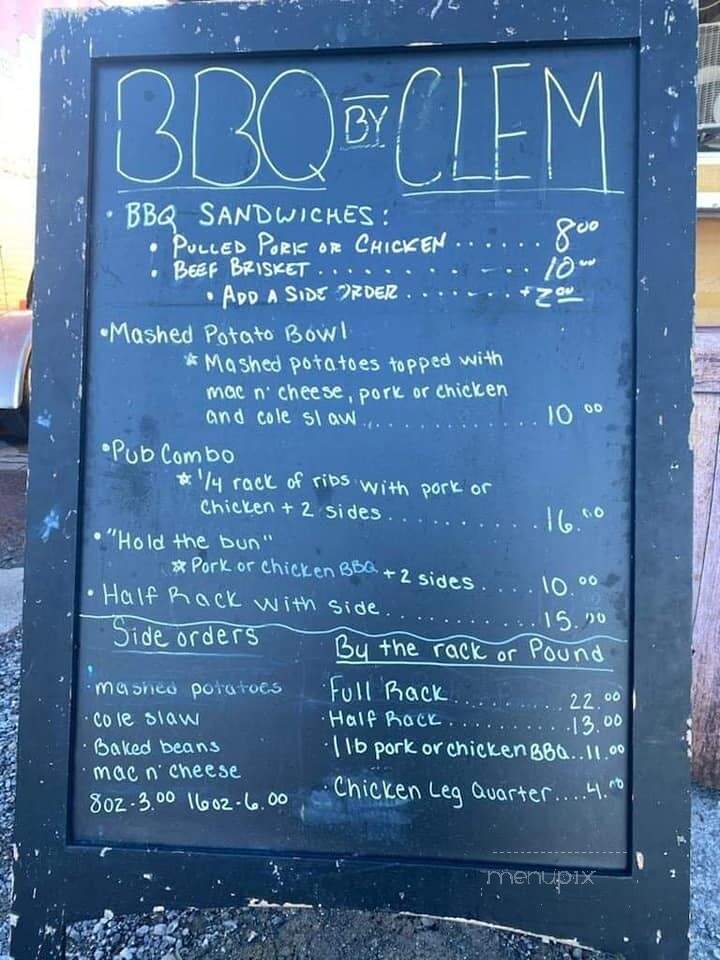 BBQ BY CLEM
• BBQ SANDWICHES:
• PULLED PORK OR CHICKEN ...... 8.00
• BEEF BRISKET ............ 10.00
• ADD A SIDE ORDER ........ +2.00
• Mashed Potato Bowl
* Mashed potatoes topped with
mac n' cheese, pork or chicken
and cole slaw ............... 10 00
• Pub Combo
* 1/4 rack of ribs with pork or
chicken + 2 sides ........... 16.00
• "Hold the bun"
* Pork or Chicken BBQ + 2 sides ..... 10.00
• Half Rack with side ............ 15.00
Side orders
· mashed potatoes
· cole slaw
· Baked beans
· mac n' cheese
8oz - 3.00 16oz - 6.00
By the rack or Pound
· Full Rack .......... 22.00
· Half Rack .......... 13.00
· 1 lb pork or chicken BBQ... 11.00
· Chicken Leg Quarter .... 4.00
menupix